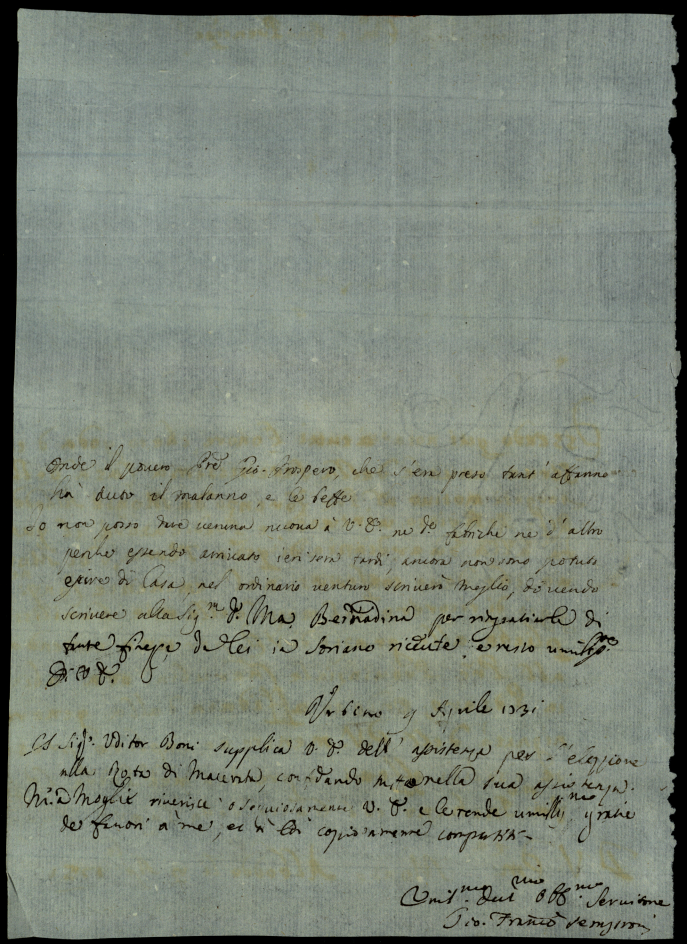 Onde il povero Sre Gio. Prospero, che s'era preso tant'affanno
hà avuto il malanno, e le beffe
Io non posso dare veruna nuova à V. E. ne de fabriche ne d'altro
perche essendo arrivato ieri sera tardi, ancora non sono potuto
escire di Casa, nel ordinario venturo scriverò meglio, dovendo
scrivere alla Sigra D. Ma Bernadina per ringratiarla di
tante finezze da lei in Soriano ricevute e resto umilmte
Di V. E.
Urbino 9 Aprile 1731
Il Sigr Uditor Boni supplica V. E. dell'assistenza per l'elezzione
alla Rota di Macerata, confidando nella sua assistenza.
Mia Moglie riverisce ossequiosamente V. E. e le rende umilissme gratie
de favori à me, et à lei copiosamente compartiti
Umilmo Devmo Obbmo Servitore
Gio. Franco Semproni